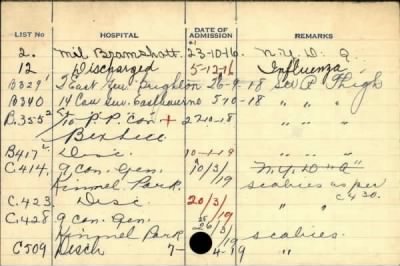 LIST NO HOSPITAL DATE OF ADMISSION REMARKS
2. Mil Bramshott. 23-10-16. N.Y.D.
12 Discharged 5-12-16 Influenza
B329 2 East Gen. Brighton 26-9-18 P Thigh
B340 14 Can Gen. Eastbourne 5-10-18 " " "
B.355 Can + 27-10-18 " " "
Bexhill
B417 Disc. 10-1-19 " " "
C.414. 9 Can. Gen. 10/3/19 N.Y.D "
Kinmel Park. scabies as per C430.
C.423 Disc 20/3/19
C.428 9 Can. Gen. 26/3/19
Kinmel Park scabies.
C509 Disch 7- 4-19 "